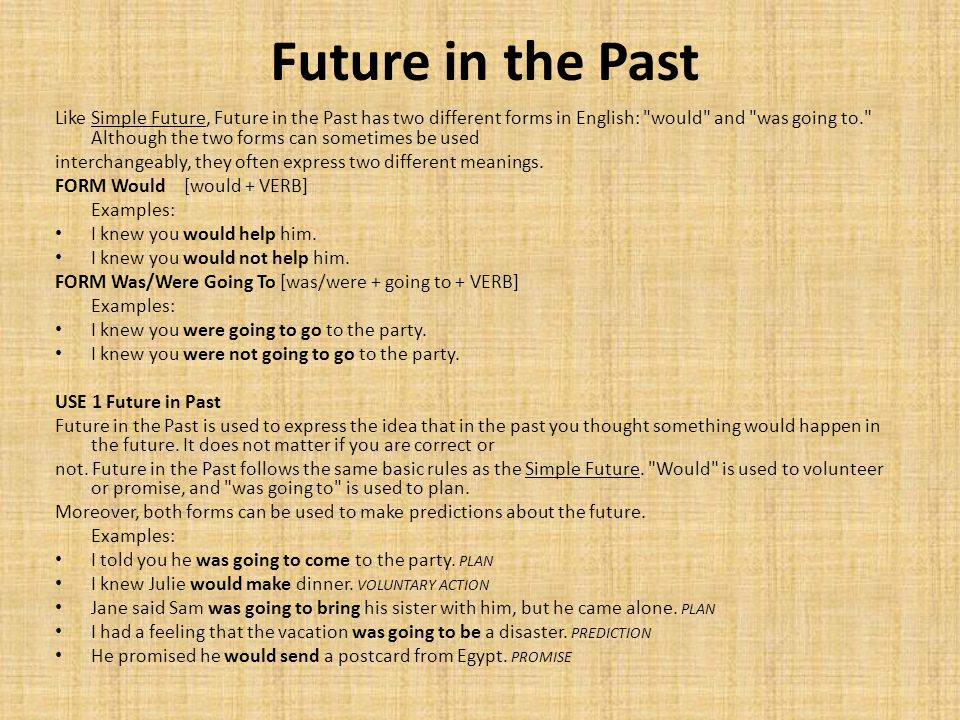 Future in the Past
Like Simple Future, Future in the Past has two different forms in English: "would" and "was going to."
Although the two forms can sometimes be used
interchangeably, they often express two different meanings.
FORM Would [would + VERB]
Examples:
• I knew you would help him.
• I knew you would not help him.
FORM Was/Were Going To [was/were + going to + VERB]
Examples:
• I knew you were going to go to the party.
• I knew you were not going to go to the party.
USE 1 Future in Past
Future in the Past is used to express the idea that in the past you thought something would happen in
the future. It does not matter if you are correct or
not. Future in the Past follows the same basic rules as the Simple Future. "Would" is used to volunteer
or promise, and "was going to" is used to plan.
Moreover, both forms can be used to make predictions about the future.
Examples:
• I told you he was going to come to the party. PLAN
• I knew Julie would make dinner. VOLUNTARY ACTION
• Jane said Sam was going to bring his sister with him, but he came alone. PLAN
• I had a feeling that the vacation was going to be a disaster. PREDICTION
• He promised he would send a postcard from Egypt. PROMISE